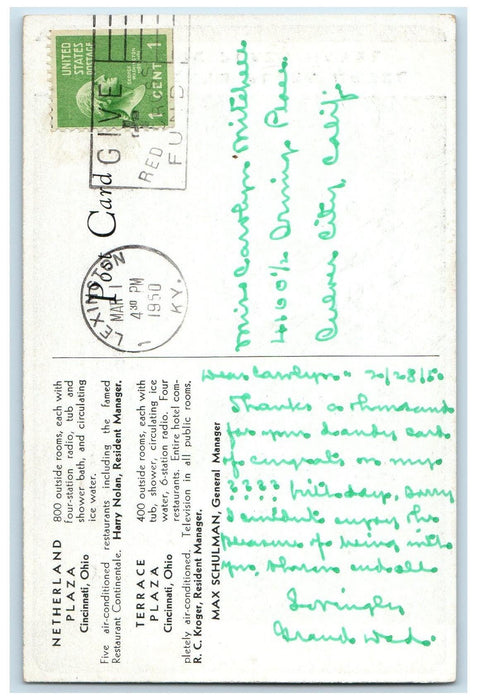 NETHERLAND PLAZA
Cincinnati, Ohio
800 outside rooms, each with
four-station radio, tub and
shower bath, and circulating
ice water.
Five air-conditioned restaurants including the famed
Restaurant Continentale. Harry Nolan, Resident Manager.
TERRACE PLAZA
Cincinnati, Ohio
400 outside rooms, each with
tub, shower, circulating ice
water, 6-station radio. Four
restaurants. Entire hotel com-
pletely air-conditioned. Television in all public rooms.
R. C. Kroger, Resident Manager.
MAX SCHULMAN, General Manager
Dear Carolyn - 2/28/50
Thanks a thousand
for your dandy card
of congrats on my
???? birthday, sorry
I couldnt enjoy the
pleasure of being with
you, Sharon and all
Lovingly
Grand Dad.
Post Card
LEXINGTON
MAR 1
4 30 PM
1950
KY.
1
GIVE
RED
FUND
UNITED
STATES
POSTAGE
1 CENT 1
Miss Carolyn Mitchell
4160½ Irving Place
Culver City Calif.